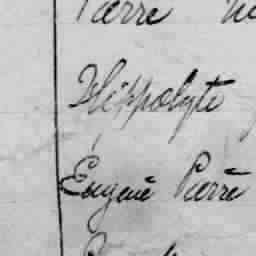 Pierre
Hippolyte
Eugène Pierre